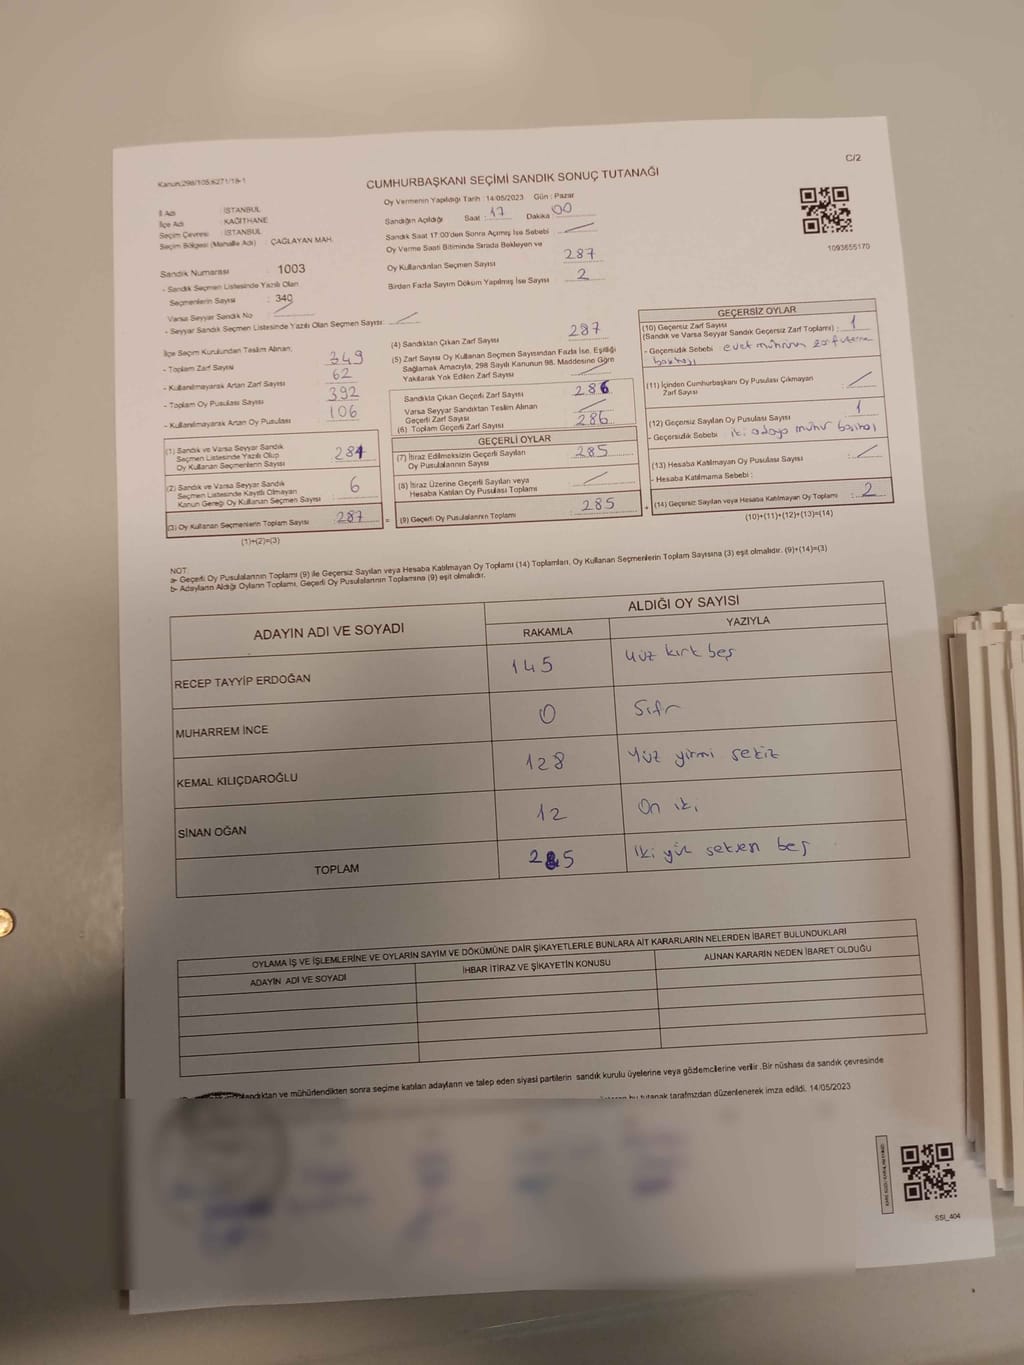 Kanun:298/105;6271/18-1
C/2
CUMHURBAŞKANI SEÇİMİ SANDIK SONUÇ TUTANAĞI
İl Adı : İSTANBUL
İlçe Adı : KAĞITHANE
Seçim Çevresi : İSTANBUL
Seçim Bölgesi (Mahalle Adı) : ÇAĞLAYAN MAH.
Oy Vermenin Yapıldığı Tarih : 14/05/2023 Gün : Pazar
Sandığın Açıldığı Saat : 17 Dakika 00
Sandık Saat 17:00'den Sonra Açılmış İse Sebebi
Oy Verme Saati Bitiminde Sırada Bekleyen ve
Oy Kullandırılan Seçmen Sayısı 287
Birden Fazla Sayım Döküm Yapılmış İse Sayısı 2
1093655170
Sandık Numarası : 1003
- Sandık Seçmen Listesinde Yazılı Olan
Seçmenlerin Sayısı : 340
Varsa Seyyar Sandık No :
- Seyyar Sandık Seçmen Listesinde Yazılı Olan Seçmen Sayısı:
İlçe Seçim Kurulundan Teslim Alınan;
- Toplam Zarf Sayısı 349
- Kullanılmayarak Artan Zarf Sayısı 62
- Toplam Oy Pusulası Sayısı 392
- Kullanılmayarak Artan Oy Pusulası 106
(1) Sandık ve Varsa Seyyar Sandık
Seçmen Listesinde Yazılı Olup
Oy Kullanan Seçmenlerin Sayısı
(2) Sandık ve Varsa Seyyar Sandık
Seçmen Listesinde Kayıtlı Olmayan
Kanun Gereği Oy Kullanan Seçmen Sayısı : 6
(3) Oy Kullanan Seçmenlerin Toplam Sayısı : 287 =
(1)+(2)=(3)
(4) Sandıktan Çıkan Zarf Sayısı 287
(5) Zarf Sayısı Oy Kullanan Seçmen Sayısından Fazla İse, Eşitliği
Sağlamak Amacıyla, 298 Sayılı Kanunun 98. Maddesine Göre
Yakılarak Yok Edilen Zarf Sayısı
Sandıkta Çıkan Geçerli Zarf Sayısı 286
Varsa Seyyar Sandıktan Teslim Alınan
Geçerli Zarf Sayısı
(6) Toplam Geçerli Zarf Sayısı 286
GEÇERLİ OYLAR
(7) İtiraz Edilmeksizin Geçerli Sayılan
Oy Pusulalarının Sayısı : 285
(8) İtiraz Üzerine Geçerli Sayılan veya
Hesaba Katılan Oy Pusulası Toplamı
(9) Geçerli Oy Pusulalarının Toplamı : 285 +
GEÇERSİZ OYLAR
(10) Geçersiz Zarf Sayısı
(Sandık ve Varsa Seyyar Sandık Geçersiz Zarf Toplamı) : 1
- Geçersizlik Sebebi : evet mührünün zarf üzerine
basılması
(11) İçinden Cumhurbaşkanı Oy Pusulası Çıkmayan
Zarf Sayısı
(12) Geçersiz Sayılan Oy Pusulası Sayısı 1
- Geçersizlik Sebebi : iki adaya mühür
(13) Hesaba Katılmayan Oy Pusulası Sayısı
- Hesaba Katılmama Sebebi :
(14) Geçersiz Sayılan veya Hesaba Katılmayan Oy Toplamı : 2
(10)+(11)+(12)+(13)=(14)
NOT:
a- Geçerli Oy Pusulalarının Toplamı (9) ile Geçersiz Sayılan veya Hesaba Katılmayan Oy Toplamı (14) Toplamları, Oy Kullanan Seçmenlerin Toplam Sayısına (3) eşit olmalıdır. (9)+(14)=(3)
b- Adayların Aldığı Oyların Toplamı, Geçerli Oy Pusulalarının Toplamına (9) eşit olmalıdır.
ADAYIN ADI VE SOYADI
ALDIĞI OY SAYISI
RAKAMLA YAZIYLA
RECEP TAYYİP ERDOĞAN 145 Yüz kırk beş
MUHARREM İNCE 0 Sıfır
KEMAL KILIÇDAROĞLU 128 Yüz yirmi sekiz
SİNAN OĞAN 12 On iki
TOPLAM 285 İki yüz seksen beş
OYLAMA İŞ VE İŞLEMLERİNE VE OYLARIN SAYIM VE DÖKÜMÜNE DAİR ŞİKAYETLERLE BUNLARA AİT KARARLARIN NELERDEN İBARET BULUNDUKLARI
ADAYIN ADI VE SOYADI İHBAR İTİRAZ VE ŞİKAYETİN KONUSU ALINAN KARARIN NEDEN İBARET OLDUĞU
ve mühürlendikten sonra seçime katılan adayların ve talep eden siyasi partilerin sandık kurulu üyelerine veya gözlemcilerine verilir .Bir nüshası da sandık çevresinde
bu tutanak tarafımızdan düzenlenerek imza edildi. 14/05/2023
SSI_404